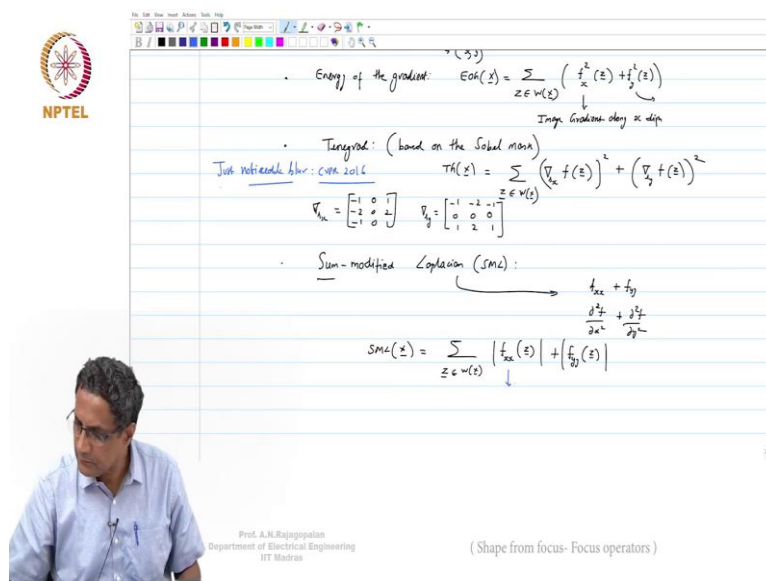 File Edit View Insert Actions Tools Help
Page Width
B I
NPTEL
(3,3)
• Energy of the gradient: EOG(x) = ∑ z ∈ W(x) ( f_x^2(z) + f_y^2(z) )
Image Gradient along x dirn
• Tenegrad: (based on the Sobel mask)
Just noticeable blur: CVPR 2016
TG(x) = ∑ z ∈ W(x) (∇_sx f(z))^2 + (∇_sy f(z))^2
∇_sx = [ -1 0 1 -2 0 2 -1 0 1 ] ∇_sy = [ -1 -2 -1 0 0 0 1 2 1 ]
• Sum-modified Laplacian (SML):
f_xx + f_yy
∂²f/∂x² + ∂²f/∂y²
SML(x) = ∑ z ∈ W(x) |f_xx(z)| + |f_yy(z)|
Prof. A.N.Rajagopalan
Department of Electrical Engineering
IIT Madras
( Shape from focus- Focus operators )